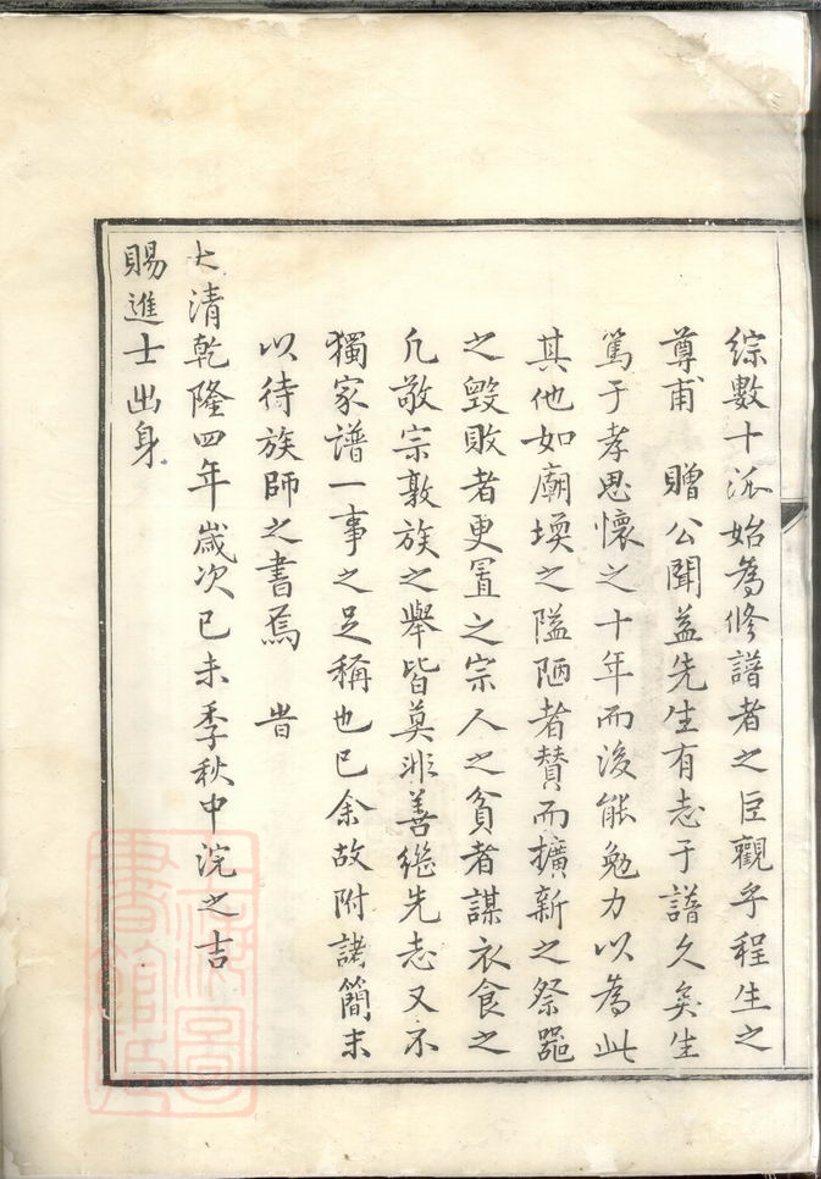 綜數十派始為修譜者之巨觀乎程生之
尊甫　贈公聞益先生有志于譜久矣生
篤于孝思懷之十年而後能勉力以為此
其他如廟堧之隘陋者贊而擴新之祭器
之毀敗者更置之宗人之貧者謀衣食之
凡敬宗敦族之舉皆莫非善繼先志又不
獨家譜一事之足稱也已余故附諸簡末
以待族師之書焉　旹
大清乾隆四年歲次己未季秋中浣之吉
賜進士出身
上海圖
書館藏